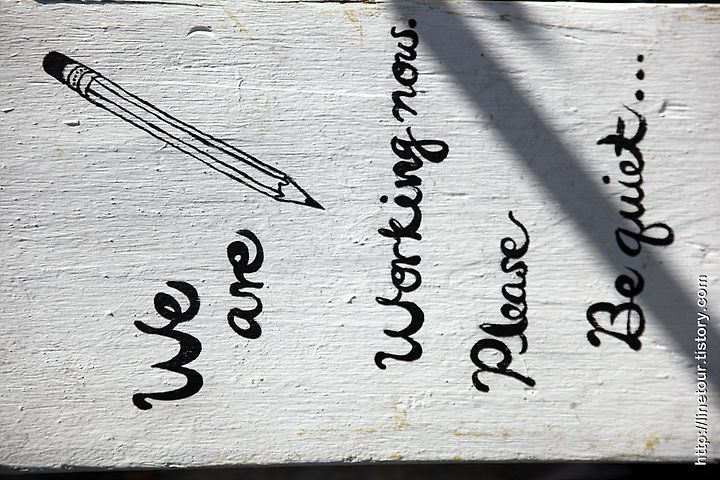 We
are
Working now.
Please
Be quiet...
http://linetour.tistory.com